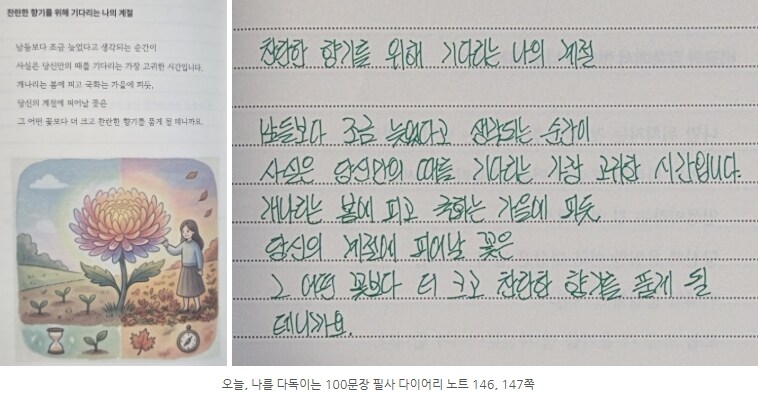 찬란한 향기를 위해 기다리는 나의 계절
남들보다 조금 늦었다고 생각되는 순간이
사실은 당신만의 때를 기다리는 가장 고귀한 시간입니다.
개나리는 봄에 피고 국화는 가을에 피듯,
당신의 계절에 피어날 꽃은
그 어떤 꽃보다 더 크고 찬란한 향기를 품게 될 테니까요.
찬란한 향기를 위해 기다리는 나의 계절
남들보다 조금 늦었다고 생각되는 순간이
사실은 당신만의 때를 기다리는 가장 고귀한 시간입니다.
개나리는 봄에 피고 국화는 가을에 피듯
당신의 계절에 피어날 꽃은
그 어떤 꽃보다 더 크고 찬란한 향기를 품게 될
테니까요.
오늘, 나를 다독이는 100문장 필사 다이어리 노트 146, 147쪽